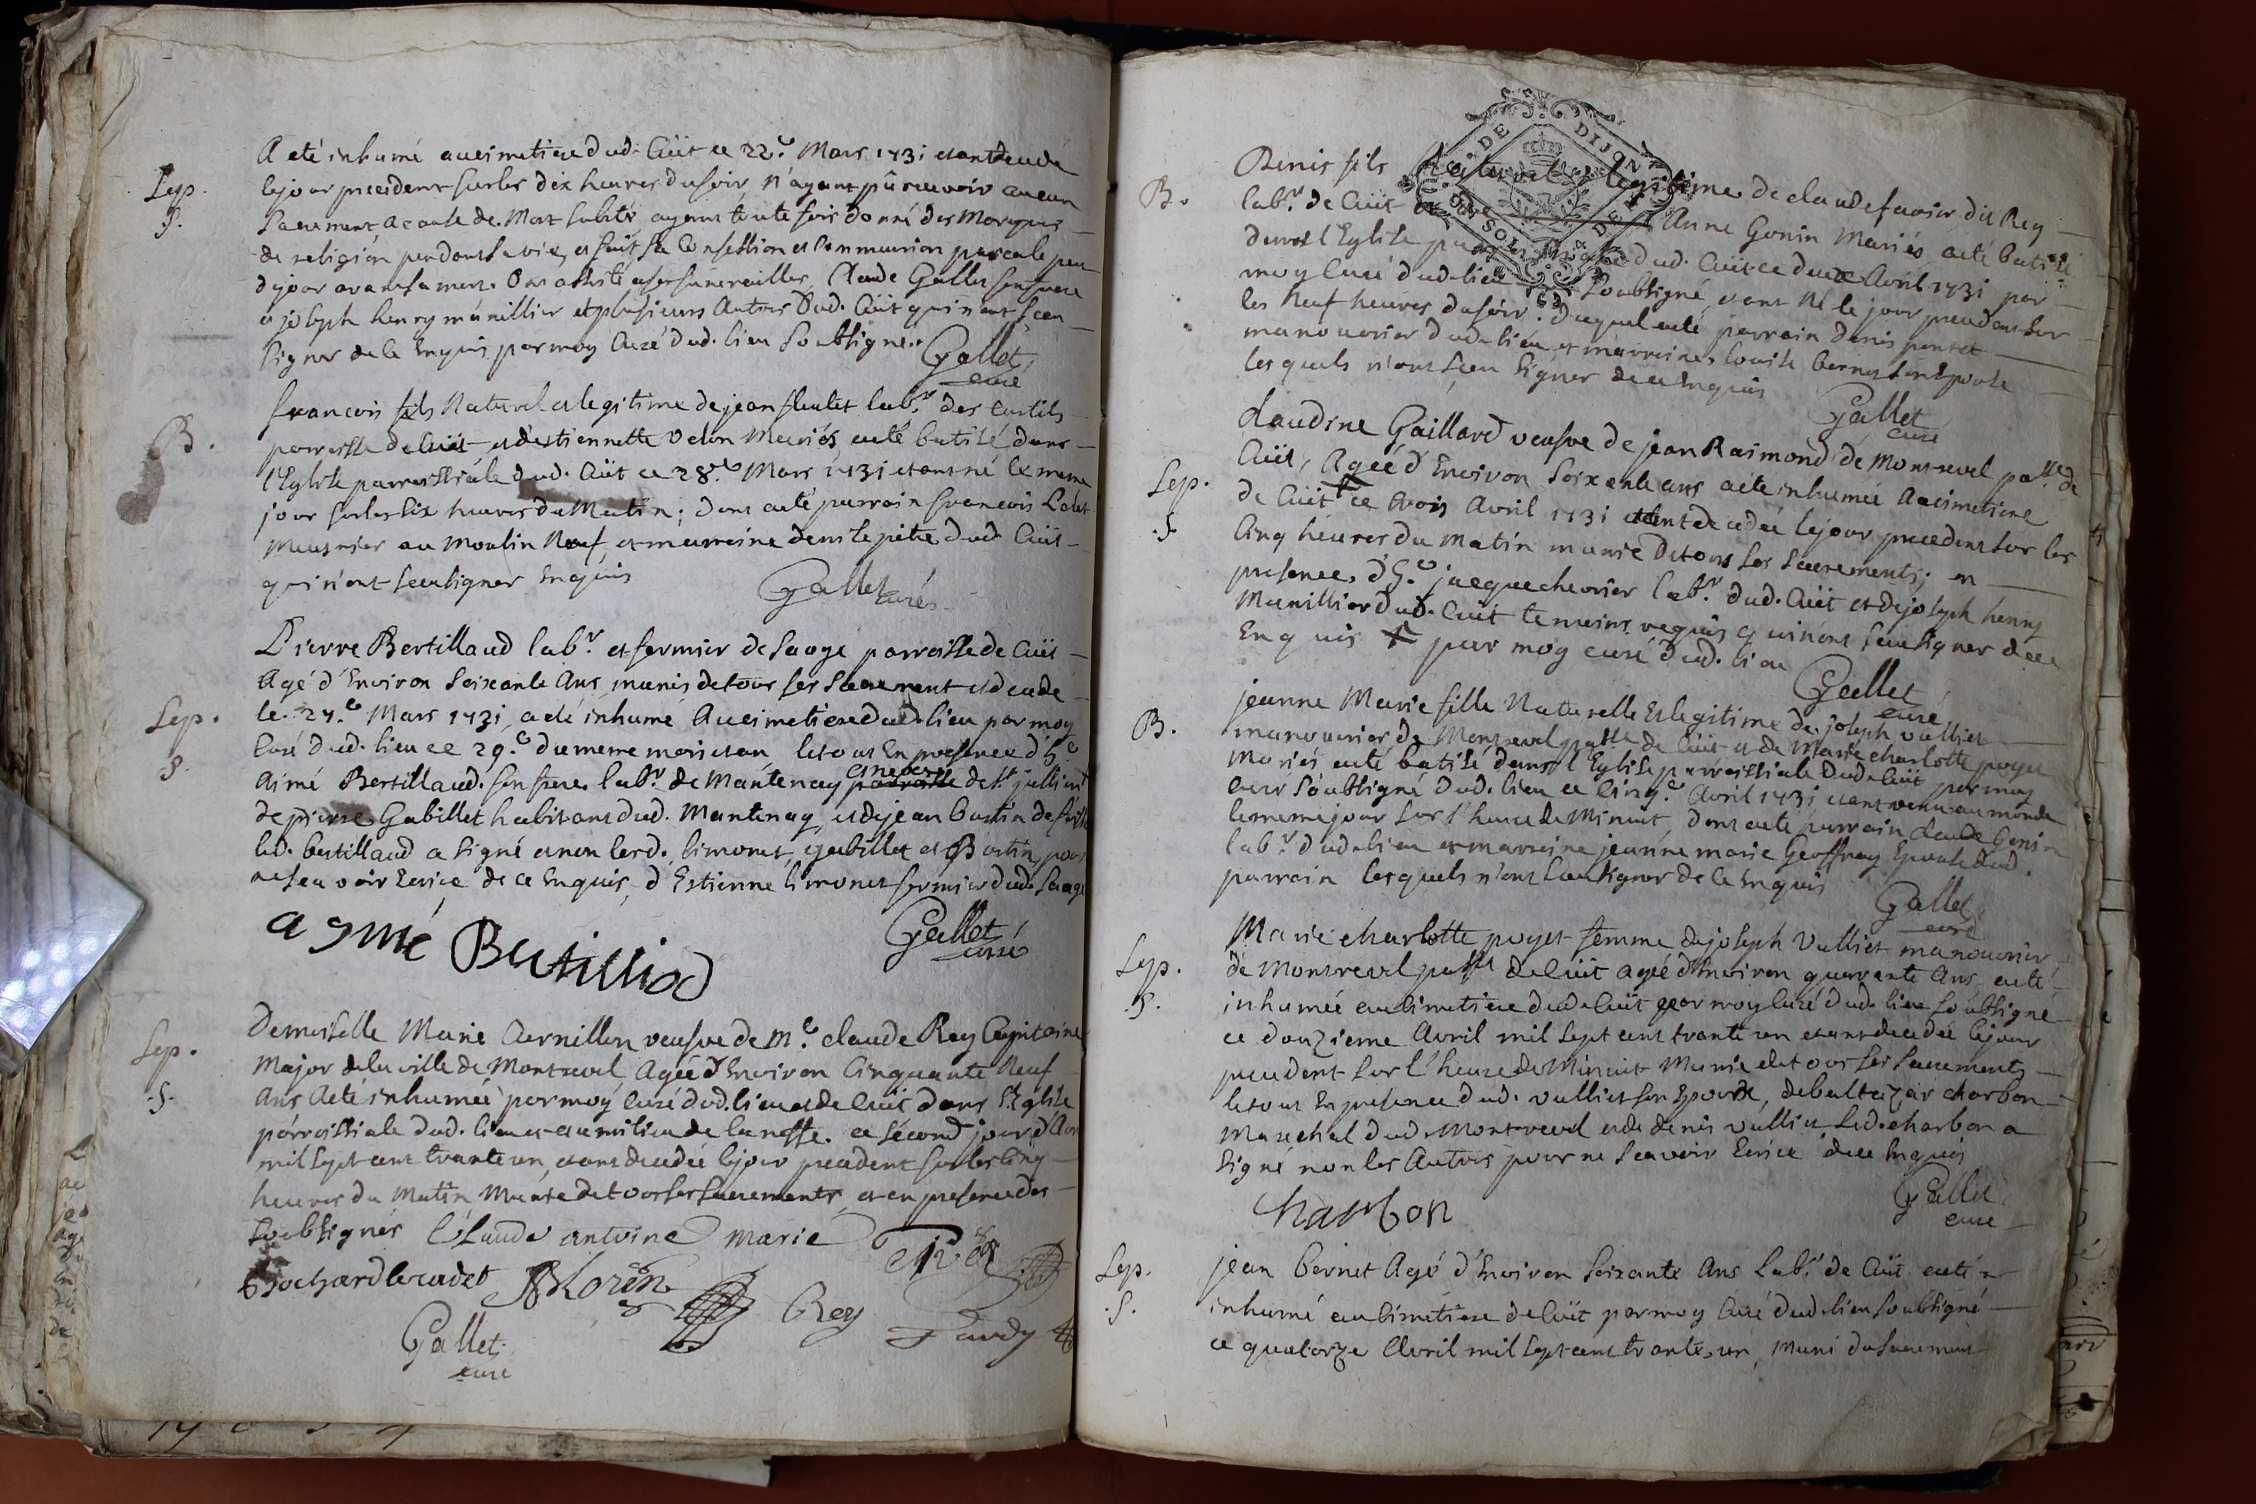 Sep.
S.
A eté inhumé au cimetiere dud. Cüit ce 22.e Mars 1731 etant decedé
le jour precedent sur les dix heures du soir, n'ayant pû recevoir aucun
Sacrement a cause de Mort subite, ayant toute fois donné des Marques
de religion pendant sa vie, et fait sa Confession et Communion pascale peu
de jour avant sa mort. Ont assisté a ses funerailles Claude Gallet
et joseph henry munillier et plusieurs Autres Dud. Cüit qui n'ont sceu
signer de ce Enquis par moy Curé dud. lieu Soubsigné.
Gallet
curé
B.
francois fils Naturel et legitime de jean fleulet lab.r des Curtils
parroisse de Cüit, et d'estiennette Velon Mariés a eté batisé dans
l'Eglise parroissiale dud. Cüit ce 28.e Mars 1731 etant né le meme
jour sur les six heures du Matin; dont a eté parrain francois
Meusnier au Moulin Neuf, et marraine denise petit dud. Cüit
qui n'ont sceu signer Enquis
Gallet curé
Sep.
S.
Pierre Bertillaud lab.r et fermier de Sauge parroisse de Cüit
Agé d'Environ Soixante Ans, munis de tous ses Sacrement et decedé
le 27.e Mars 1731, a eté inhumé Au cimetiere dud. lieu par moy
Curé dud. lieu ce 29.e du meme mois et an, le tout En presence d'h.e
Aimé Bertillaud son frere lab.r de Mantenay parroisse de St jullien
de pierre Gabillet habitant dud. Mantenay, et de jean bastin
led. bertillaud a signé et non lesd. limonet, gabillet et Bastin, pour
ne scavoir Ecrire de ce Enquis, d'Estienne limonet fermier dud. Sauge
aymé Bertilliod
Gallet
curé
Sep.
.S.
Demoiselle Marie Cornillon veufve de M.e claude Rey Capitaine
Major de la ville de Montrevel Agée d'Environ Cinquante Neuf
Ans A eté inhumée par moy Curé dud. lieu et de Cüit dans l'Eglise
parroissiale dud. lieu et au milieu de la neffe. ce Second jour d'Avril
mil Sept cent trante un, etant decedée le jour precedent sur les cinq
heures du Matin Munie de tous ses Sacrements, et en presence des
Soubsignés Claude antoine marie
Brochard le cadet
Rey
Gallet
curé
B.
Denis fils Naturel et legitime de claude favier, dit Rey
lab.r de Cüit et Anne Gonin Mariés, a eté batisé
dans l'Eglise dud. Cüit ce deux Avril 1731 par
moy Curé dud. lieu Soubsigné, etant Né le jour precedent sur
les Neuf heures du soir. duquel a eté parrain denis
manouvrier dud. lieu et marraine, louise bernet son Epouse
lesquels n'ont sceu signer de ce Enquis
Gallet
curé
Sep.
.S.
Claudine Gaillard veufve de jean Raimond de Montrevel pa.sse de
Cüit, Agée d'Environ Soixante ans a eté inhumée Au cimetiere
de Cüit ce trois Avril 1731 etant decedée le jour precedent sur les
cinq heures du Matin munie De tous ses Sacrements; en
presence, d'h.e jacque chevrier lab.r dud. Cüit et de joseph henry
Munillier dud. Cüit temoins requis qui n'ont sceu signer de ce
Enquis par moy curé dud. lieu
Gallet
curé
B.
jeanne Marie fille Naturelle et legitime de joseph vulliet
manouvrier de Montrevel pa.sse de Cüit et de Marie charlotte poyet
Mariés a eté batisé dans l'Eglise parroissiale dud. Cüit par moy
curé Soubsigné dud. lieu ce Cinq.e Avril 1731 etant venu au monde
le meme jour sur l'heure de Minuit, dont a eté parrain claude Gonin
lab.r dud. lieu et marraine jeanne marie Geoffray Epouse dud.
parrain lesquels n'ont sceu signer de ce Enquis
Gallet
curé
Sep.
.S.
Marie charlotte poyet femme de joseph Vulliet manouvrier
de Montrevel pa.sse de Cüit agée d'Environ quarante Ans, a eté
inhumée au cimetiere dud. Cüit par moy Curé dud. lieu soubsigné
ce douzieme Avril mil Sept cent trante un etant decedée le jour
precedent sur l'heure de Minuit Munie de tous ses Sacrements
le tout En presence dud. vulliet son Epoux, de baltazar charbon
Marechal dud. Montrevel et de denis vulliet Led. charbon a
signé non les Autres pour ne scavoir Ecrire de ce Enquis
Charbon
Gallet
curé
Sep.
.S.
jean bernet Agé d'Environ Soixante Ans Lab.r de Cüit a eté
inhumé au Cimetiere de Cüit par moy Curé dud. lieu soubsigné
ce quatorze Avril mil Sept cent trante, un, Muni du sacrement